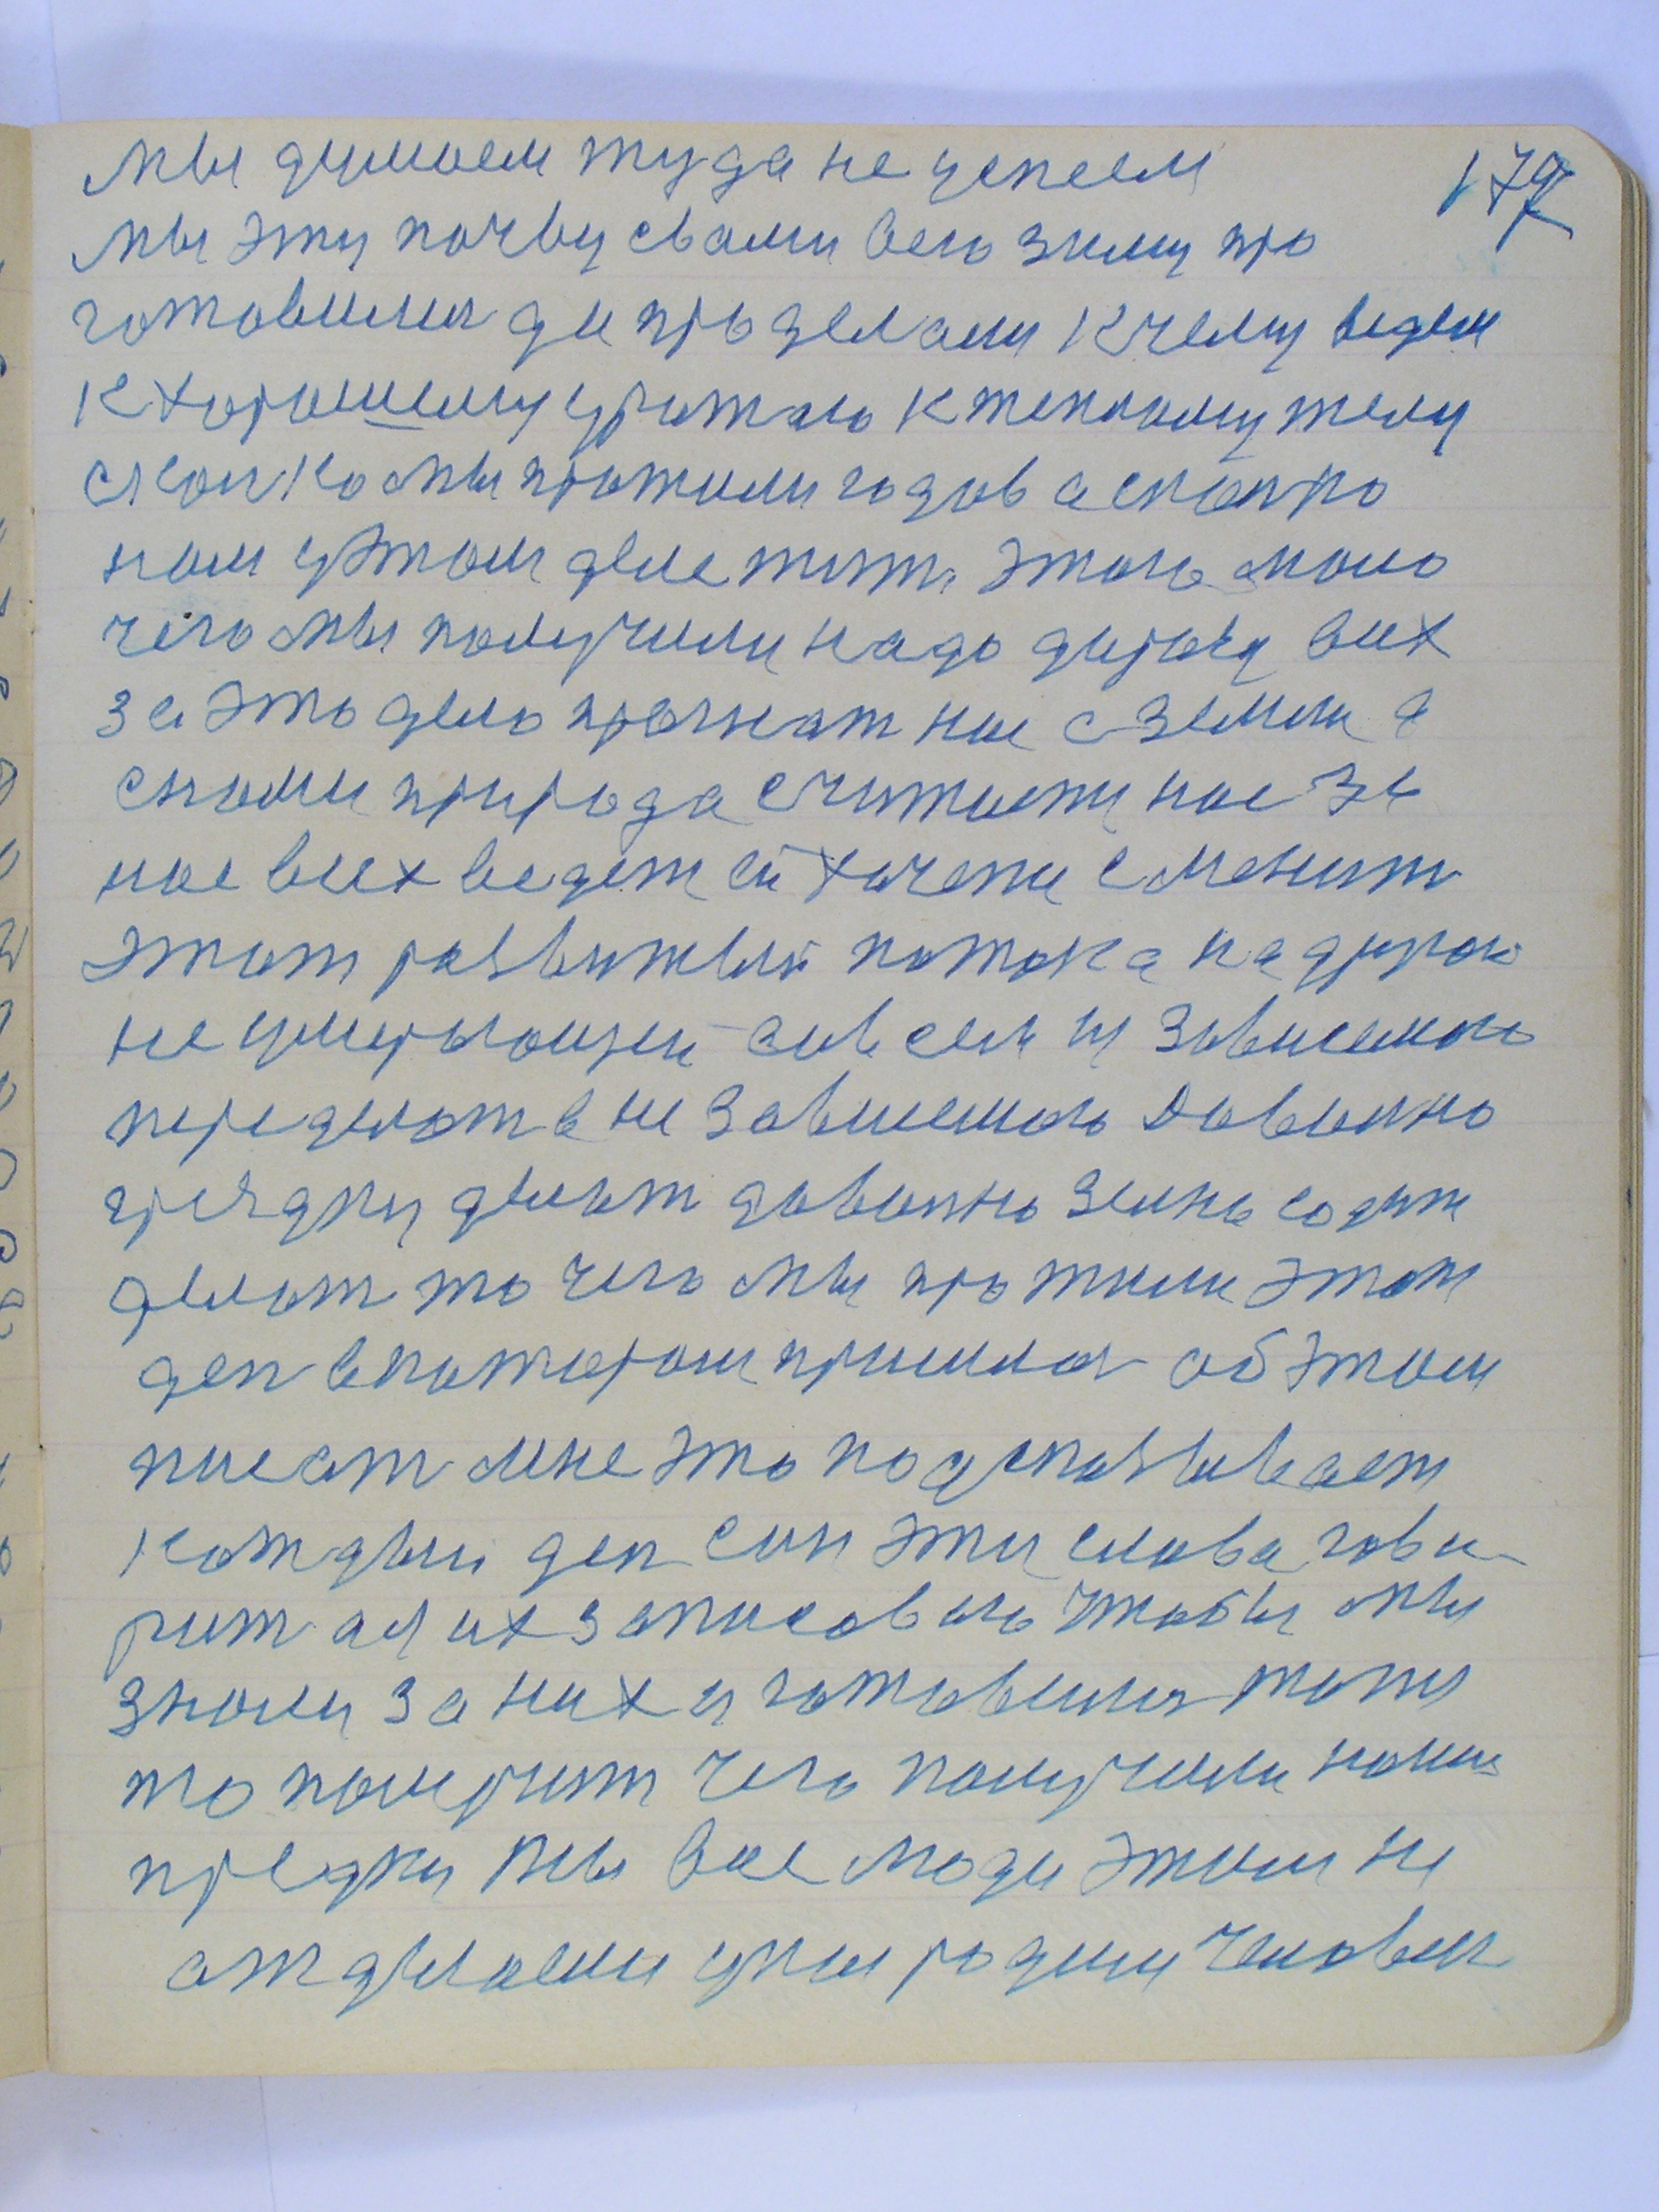 мы думаем туда не успеем
179
мы эту почву свами всю зиму про
готовились да проделами к чему ведем
к хорошему урожаю к теплому телу
сколко мы прожили годов а сколко
нам у этом деле жит. этого мало
чего мы получили надо дураку всех
за это дело прогнат нас с земли а
снами природа считаюти нас за
нас всех ведет ей хочети сменит
этот развитый потока на другою
не умирающею совсем из зависемою
переделат в не зависемою Довольно
грядку делат довольно зимье содит
делат то чего мы прожили этот
ден в котором пришлос об этом
писат мне это подсказывает
каждый ден сил эти слова гово-
рит а я их записоваю чтобы мы
знали за них и готовилис толи
то получит чего получили наши
предки Мы все люди этим не
отделаеми у природи человек